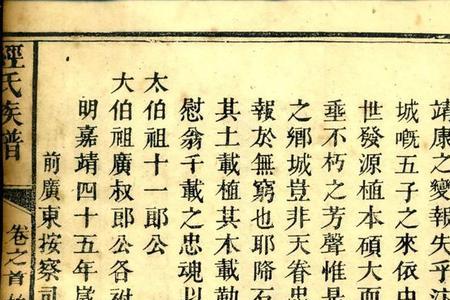 靖康之變報失乎
城嘅五子之來依中
世發源植本碩大而
垂不朽之芳聲惟是
之鄉城豈非天眷忠
報於無窮也耶降石
其土載植其木載勒
慰翁千載之忠魂以
太伯祖十一郎公
大伯祖廣叔郎公各祔
明嘉靖四十五年歲
前廣東按察司
氏族譜
卷之首